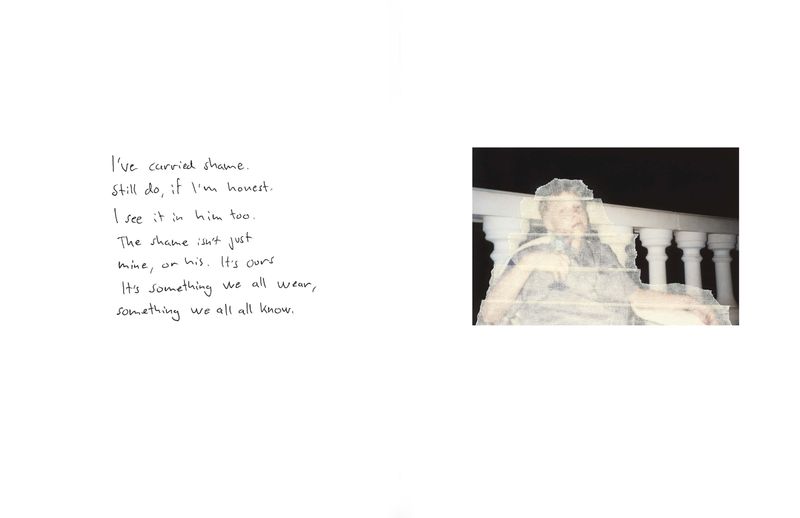 I've carried shame.
Still do, if I'm honest.
I see it in him too.
The shame isn't just
mine, or his. It's ours
It's something we all wear,
something we all all know.